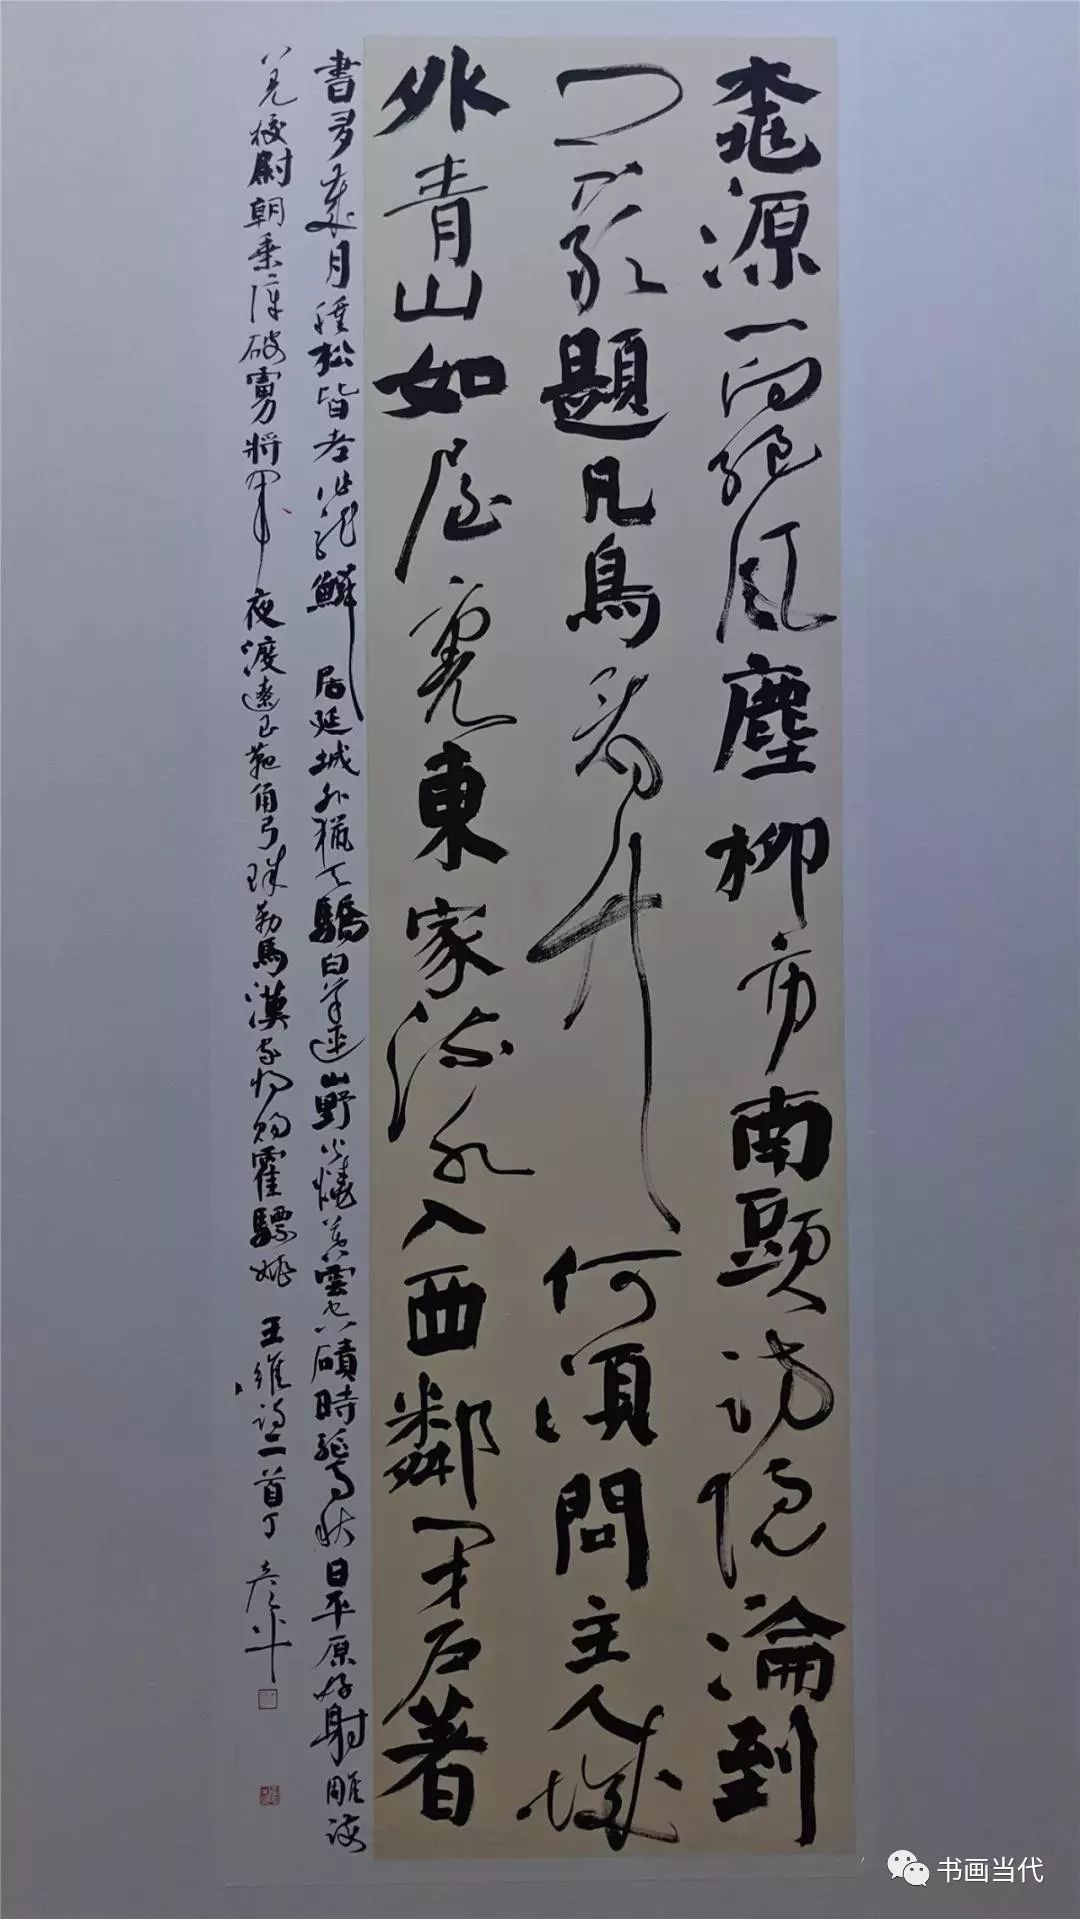 桃源一向絕風塵柳市南頭訪隱淪到
門不敢題凡鳥看竹何須問主人城
外青山如屋裏東家流水入西鄰閉戶著
書多歲月種松皆老作龍鱗 居延城外獵天驕白草連山野火燒暮雲空磧時驅馬秋日平原好射雕護
羌校尉朝乘障破虜將軍夜渡遼玉靶角弓珠勒馬漢家將賜霍驃姚 王維詩二首丁
书画当代